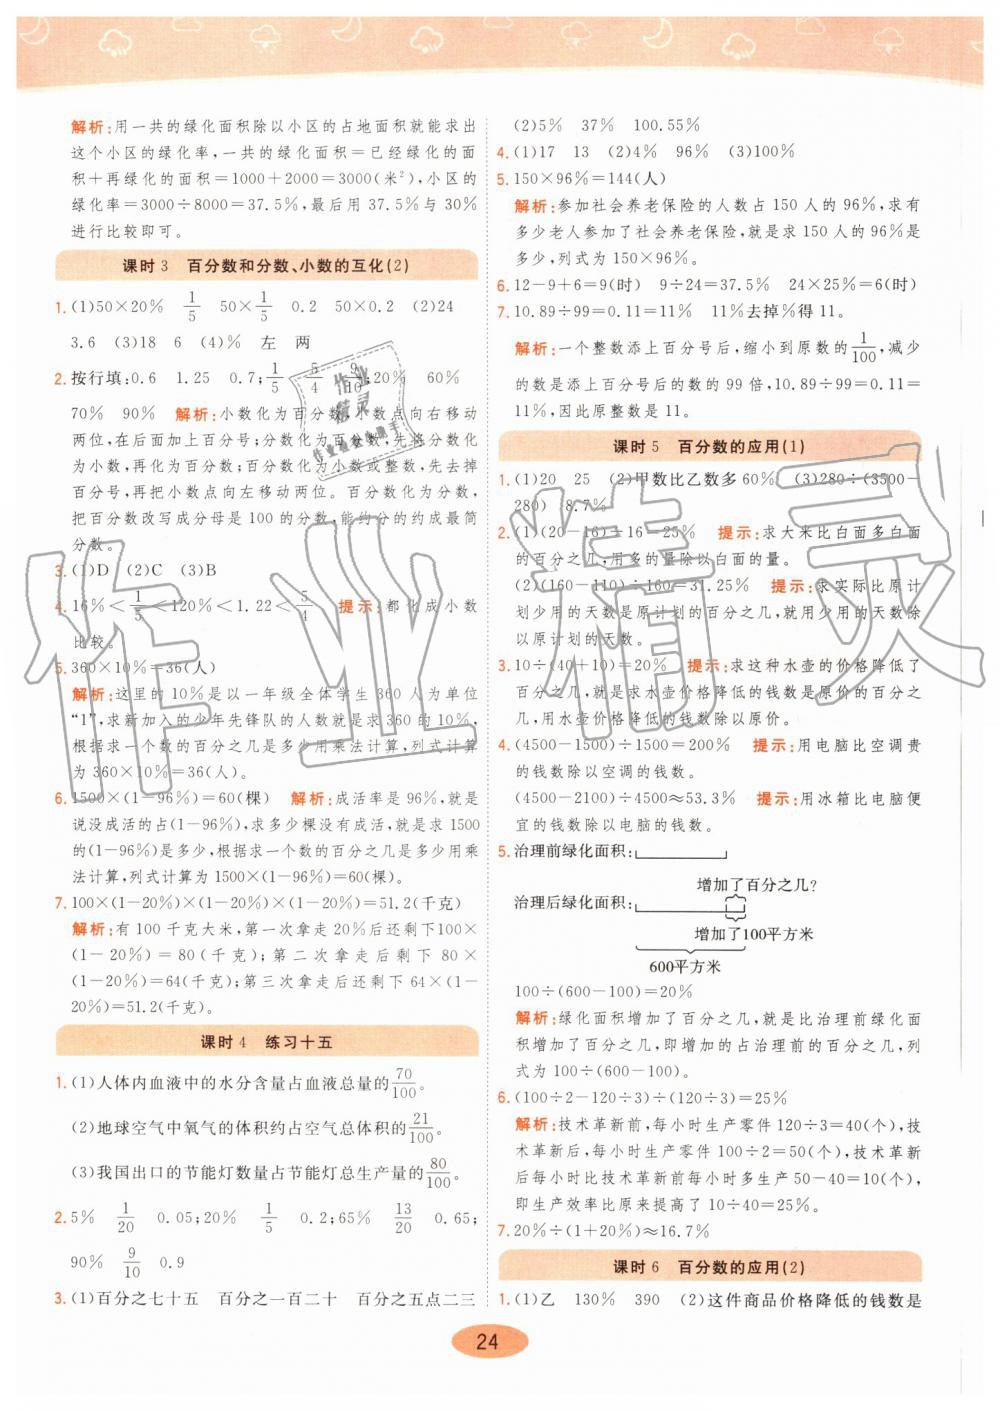 解析:用一共的绿化面积除以小区的占地面积就能求出
这个小区的绿化率,一共的绿化面积=已经绿化的面
积+再绿化的面积=1000+2000=3000(米²),小区的
绿化率=3000÷8000=37.5%,最后用 37.5%与 30%
进行比较即可。
课时 3 百分数和分数、小数的互化(2)
1. (1)50×20% 1/5 50×1/5 0.2 50×0.2 (2)24
3.6 (3)18 6 (4)% 左 两
2. 按行填:0.6 1.25 0.7;1/5 5/4 9/10;20% 60%
70% 90% 解析:小数化为百分数,小数点向右移动
两位,在后面加上百分号;分数化为百分数,先将分数化
为小数,再化为百分数;百分数化为小数或整数,先去掉
百分号,再把小数点向左移动两位。百分数化为分数,
把百分数改写成分母是 100 的分数,能约分的约成最简
分数。
3. (1)D (2)C (3)B
4. 16%<1/5<120%<1.22<5/4 提示:都化成小数
比较。
5. 360×10%=36(人)
解析:这里的 10%是以一年级全体学生 360 人为单位
“1”,求新加入的少年先锋队的人数就是求 360 的 10%,
根据求一个数的百分之几是多少用乘法计算,列式计算
为 360×10%=36(人)。
6. 1500×(1-96%)=60(棵) 解析:成活率是 96%,就是
说没成活的占(1-96%),求多少棵没有成活,就是求 1500
的(1-96%)是多少,根据求一个数的百分之几是多少用乘
法计算,列式计算为 1500×(1-96%)=60(棵)。
7. 100×(1-20%)×(1-20%)×(1-20%)=51.2(千克)
解析:有 100 千克大米,第一次拿走 20%后还剩下100×
(1-20%)=80(千克);第二次拿走后剩下 80×
(1-20%)=64(千克);第三次拿走后还剩下 64×(1-
20%)=51.2(千克)。
课时 4 练习十五
1. (1)人体内血液中的水分含量占血液总量的70/100。
(2)地球空气中氧气的体积约占空气总体积的21/100。
(3)我国出口的节能灯数量占节能灯总生产量的80/100。
2. 5% 1/20 0.05;20% 1/5 0.2;65% 13/20 0.65;
90% 9/10 0.9
3. (1)百分之七十五 百分之一百二十 百分之五点二三
(2)5% 37% 100.55%
4. (1)17 13 (2)4% 96% (3)100%
5. 150×96%=144(人)
解析:参加社会养老保险的人数占 150 人的 96%,求有
多少老人参加了社会养老保险,就是求 150 人的 96%是
多少,列式为 150×96%。
6. 12-9+6=9(时) 9÷24=37.5% 24×25%=6(时)
7. 10.89÷99=0.11=11% 11%去掉%得 11。
解析:一个整数添上百分号后,缩小到原数的1/100,减少
的数是添上百分号后的数的 99 倍,10.89÷99=0.11=
11%,因此原整数是 11。
课时 5 百分数的应用(1)
1. (1)20 25 (2)甲数比乙数多 60% (3)280÷(3500-
280) 8.7%
2. (1)(20-16)÷16=25% 提示:求大米比白面多白面
的百分之几,用多的量除以白面的量。
(2)(160-110)÷160=31.25% 提示:求实际比原计
划少用的天数是原计划的百分之几,就用少用的天数除
以原计划的天数。
3. 10÷(40+10)=20% 提示:求这种水壶的价格降低了
百分之几,就是求水壶价格降低的钱数是原价的百分之
几,用水壶价格降低的钱数除以原价。
4. (4500-1500)÷1500=200% 提示:用电脑比空调贵
的钱数除以空调的钱数。
(4500-2100)÷4500≈53.3% 提示:用冰箱比电脑便
宜的钱数除以电脑的钱数。
5. 治理前绿化面积:
增加了百分之几?
治理后绿化面积:
增加了100平方米
600平方米
100÷(600-100)=20%
解析:绿化面积增加了百分之几,就是比治理前绿化面
积增加了百分之几,即增加的占治理前的百分之几,列
式为 100÷(600-100)。
6. (100÷2-120÷3)÷(120÷3)=25%
解析:技术革新前,每小时生产零件 120÷3=40(个),技
术革新后,每小时生产零件 100÷2=50(个),技术革新
后每小时比技术革新前每小时多生产 50-40=10(个),
即生产效率比原来提高了 10÷40=25%。
7. 20%÷(1+20%)≈16.7%
课时 6 百分数的应用(2)
1. (1)乙 130% 390 (2)这件商品价格降低的钱数是
24
作业精灵